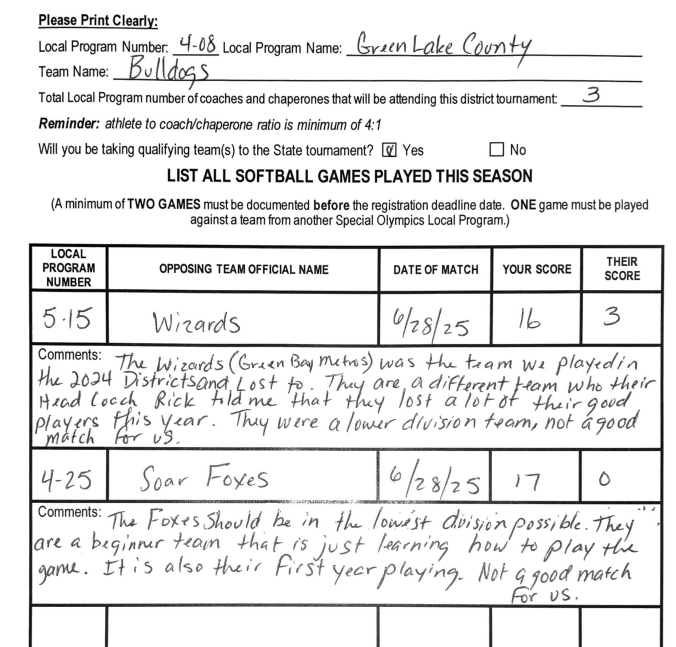 Please Print Clearly:
Local Program Number: 4-08 Local Program Name: Green Lake County
Team Name: Bulldogs
Total Local Program number of coaches and chaperones that will be attending this district tournament: 3
Reminder: athlete to coach/chaperone ratio is minimum of 4:1
Will you be taking qualifying team(s) to the State tournament? ☑ Yes ☐ No
LIST ALL SOFTBALL GAMES PLAYED THIS SEASON
(A minimum of TWO GAMES must be documented before the registration deadline date. ONE game must be played
against a team from another Special Olympics Local Program.)
LOCAL PROGRAM NUMBER OPPOSING TEAM OFFICIAL NAME DATE OF MATCH YOUR SCORE THEIR SCORE
5-15 Wizards 6/28/25 16 3
Comments: The Wizards (Green Bay Metros) was the team we played in
the 2024 Districts and Lost to. They are a different team who their
Head Coach Rick told me that they lost a lot of their good
players this year. They were a lower division team, not a good
match for us.
4-25 Soar Foxes 6/28/25 17 0
Comments: The Foxes should be in the lowest division possible. They
are a beginner team that is just learning how to play the
game. It is also their first year playing. Not a good match
For us.